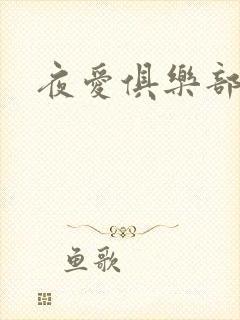 夜愛俱樂部
鱼歌